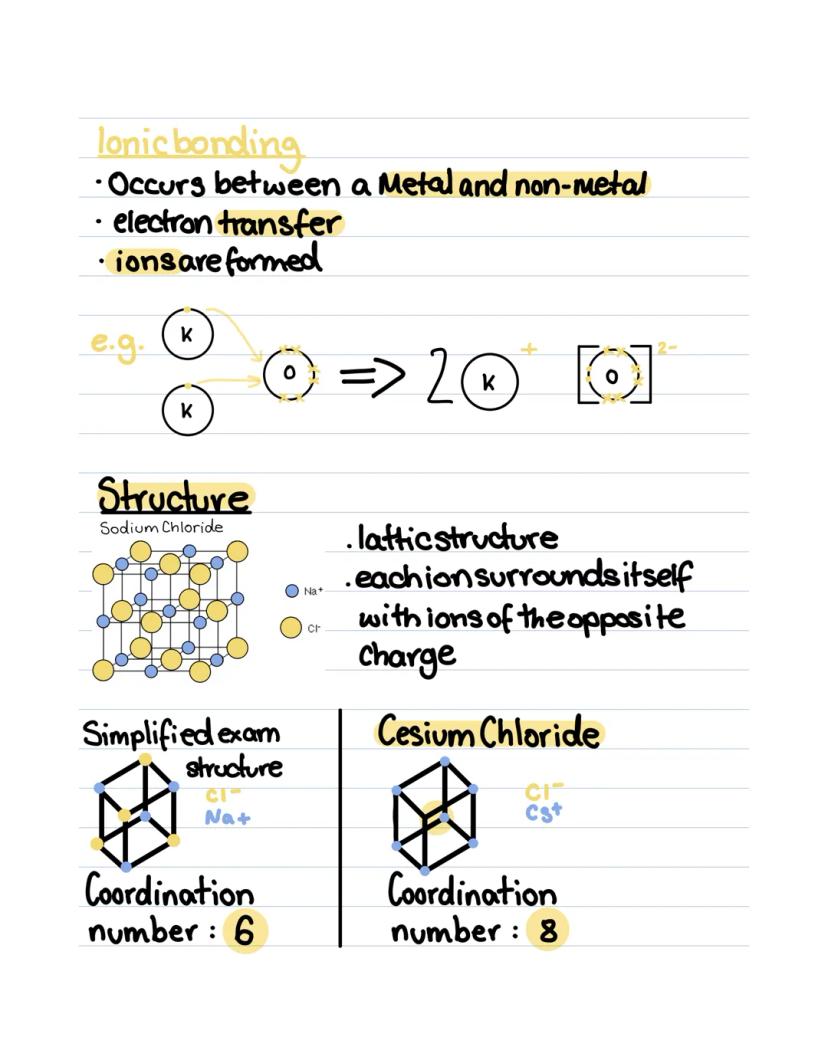 Ionic bonding
· Occurs between a Metal and non-metal
· electron transfer
· ions are formed
e.g.
K
K
O
=> 2 K +
[O] 2-
Structure
Sodium Chloride
Na+
Cl-
. lattic structure
. each ion surrounds itself
with ions of the opposite
charge
Simplified exam
structure
Cl-
Na+
Coordination
number : 6
Cesium Chloride
Cl-
Cs+
Coordination
number : 8